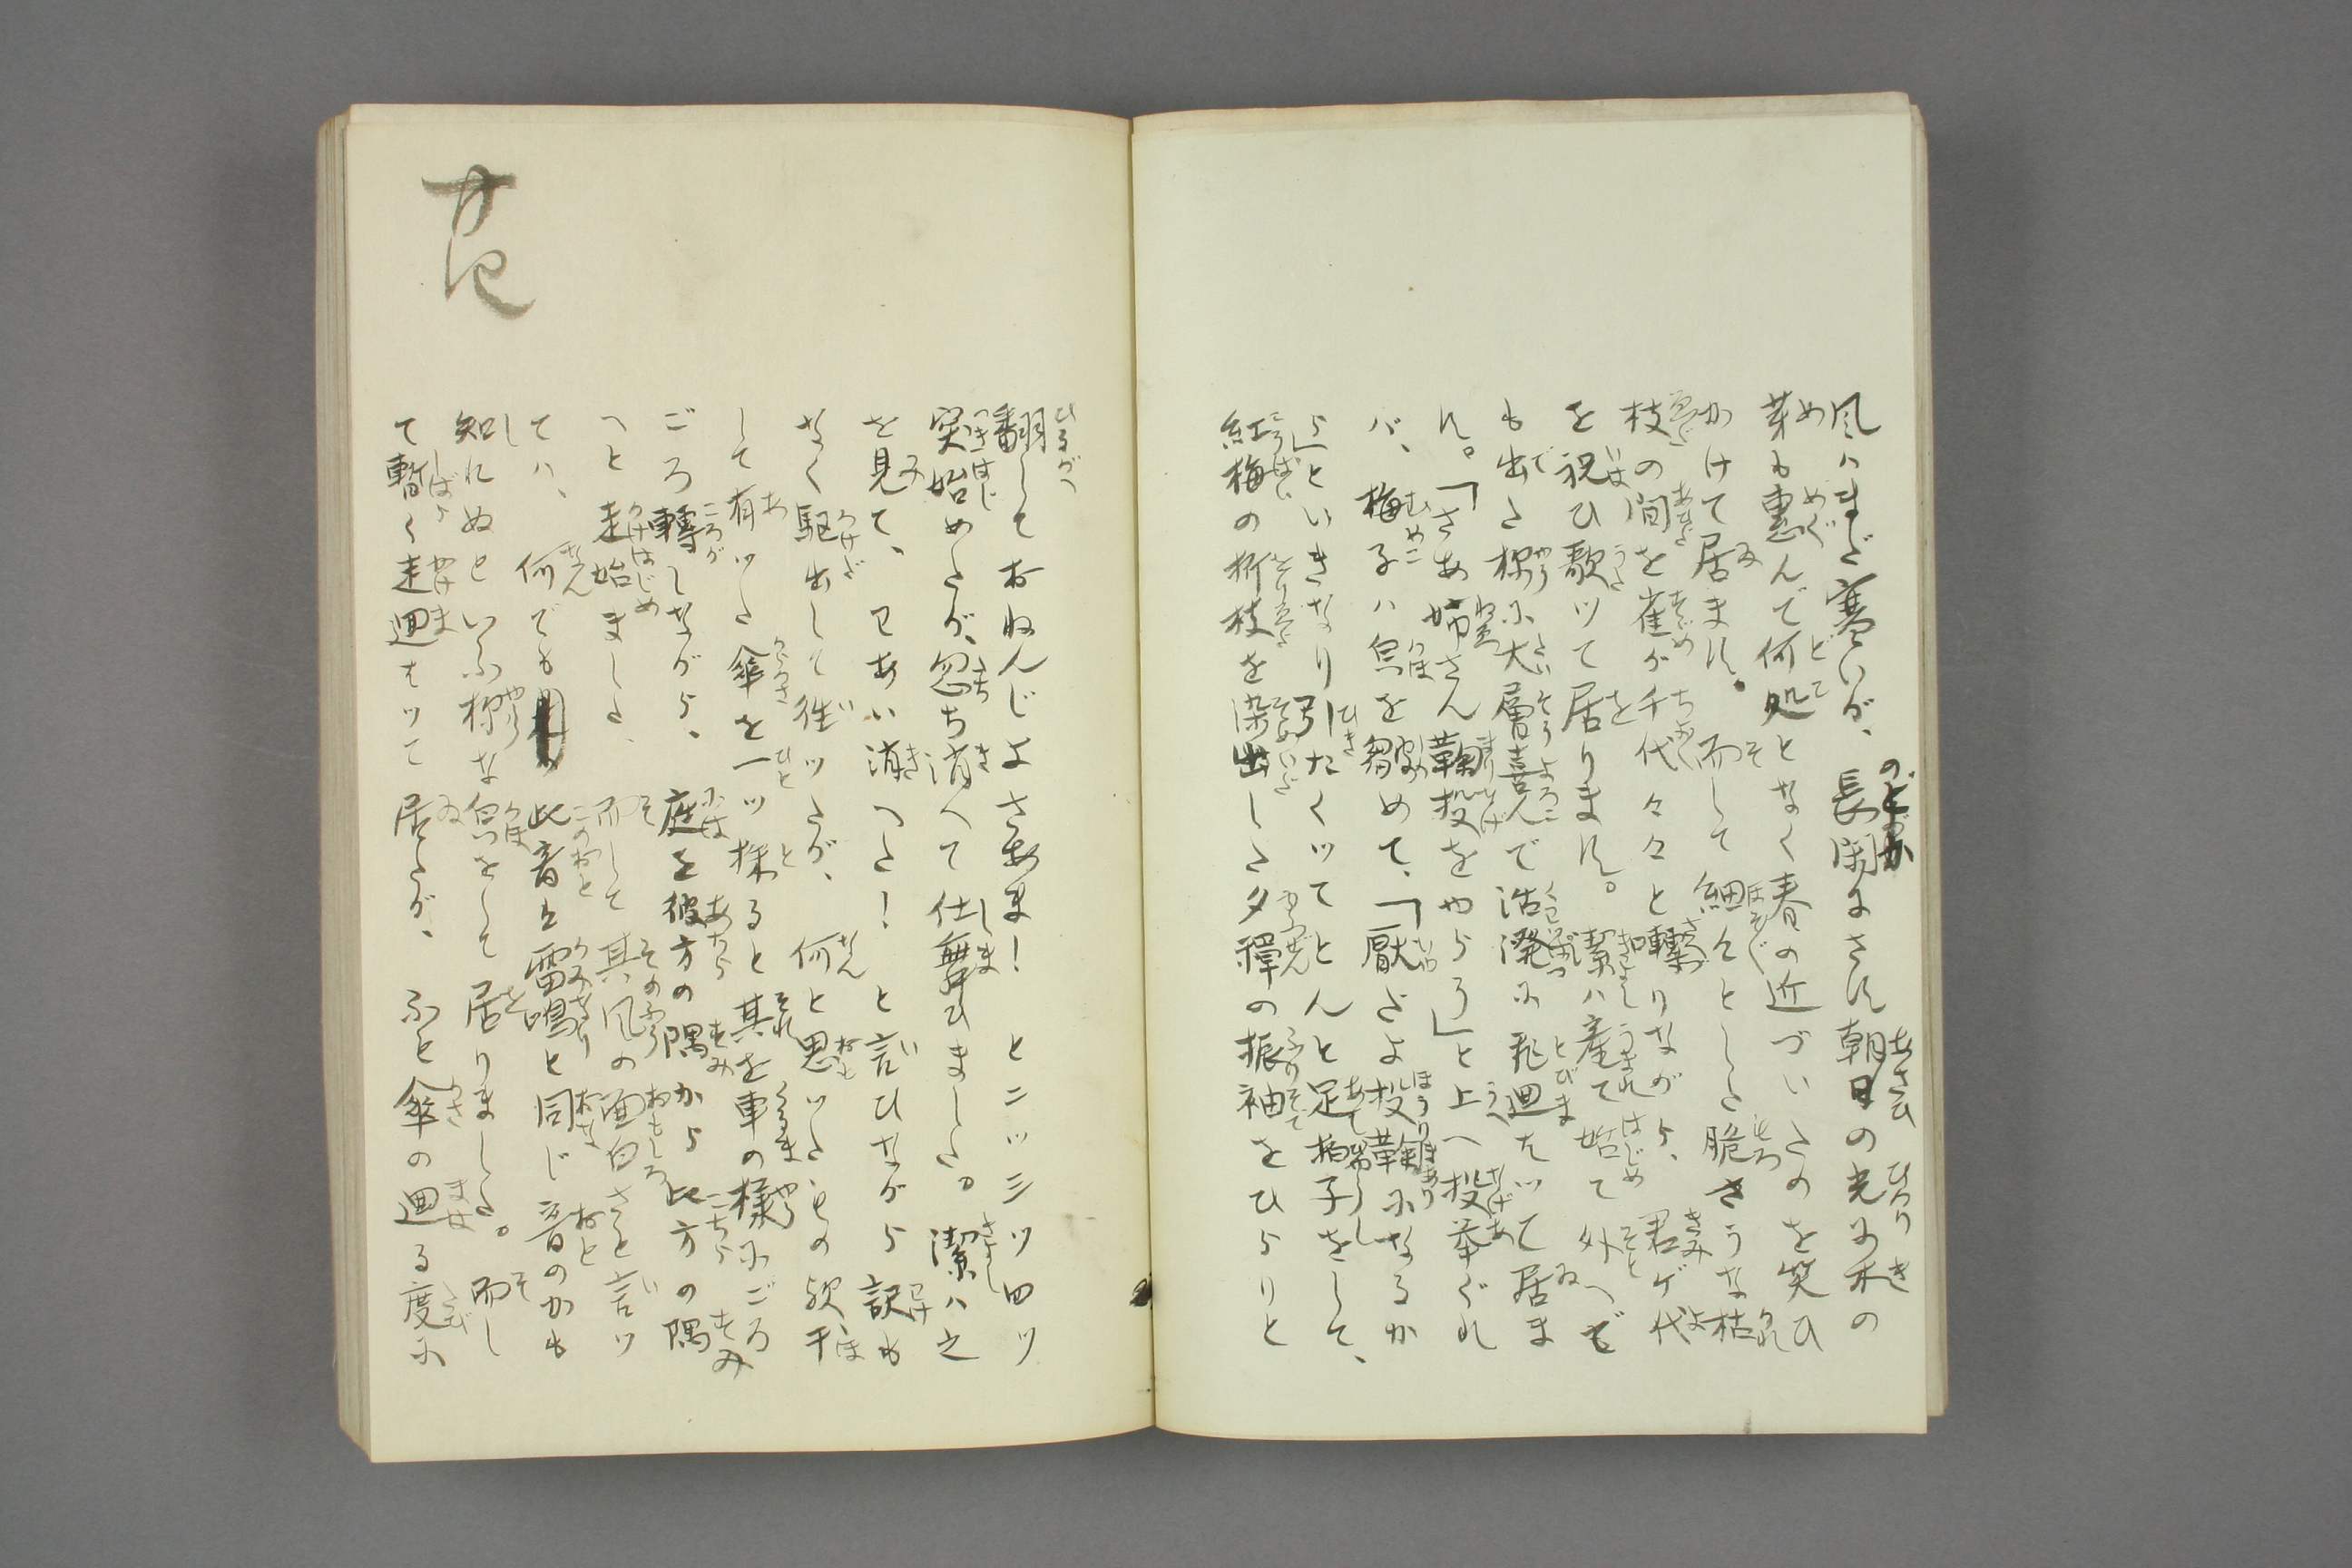 風ハまだ寒いが、長閑にさす朝日の光に木の
芽も恵んで何処となく春の近づいたのを笑ひ
かけて居ます。而して細々とした脆さうな枯
枝の間を雀が千代々々と囀りながら、君が代
を祝ひ歌ツて居ります。潔ハ産て始て外へで
も出た様に大層喜んで活溌に飛廻はツて居ま
す。「さあ姉さん鞠投をやらう」と上へ投挙ぐれ
バ、梅子ハ㒵を皺めて、「厭だよ投鞠になるか
ら」といきなり引たくツてとんと足拍子をして、
紅梅の折枝を染出した夕禅の振袖をひらりと
翻しておねんじよさあま！とニッ三ツ四ツ
突始めたが、忽ち消へて仕舞ひました。潔ハ之
を見て、ワあい消へた！と言ひながら訳も
なく駆出して往ツたが、何と思ツたものか、干
して有ツた傘を一ツ採ると其を車の様にごろ
ごろ轉しながら、庭を彼方の隅から此方の隅
へと走始ました、而して其風の面白さと言ツ
てハ、何でも此音を雷鳴と同じ音のかも
知れぬといふ様な㒵をして居りました。而し
て暫く走廻はツて居たが、ふと傘の廻る度に